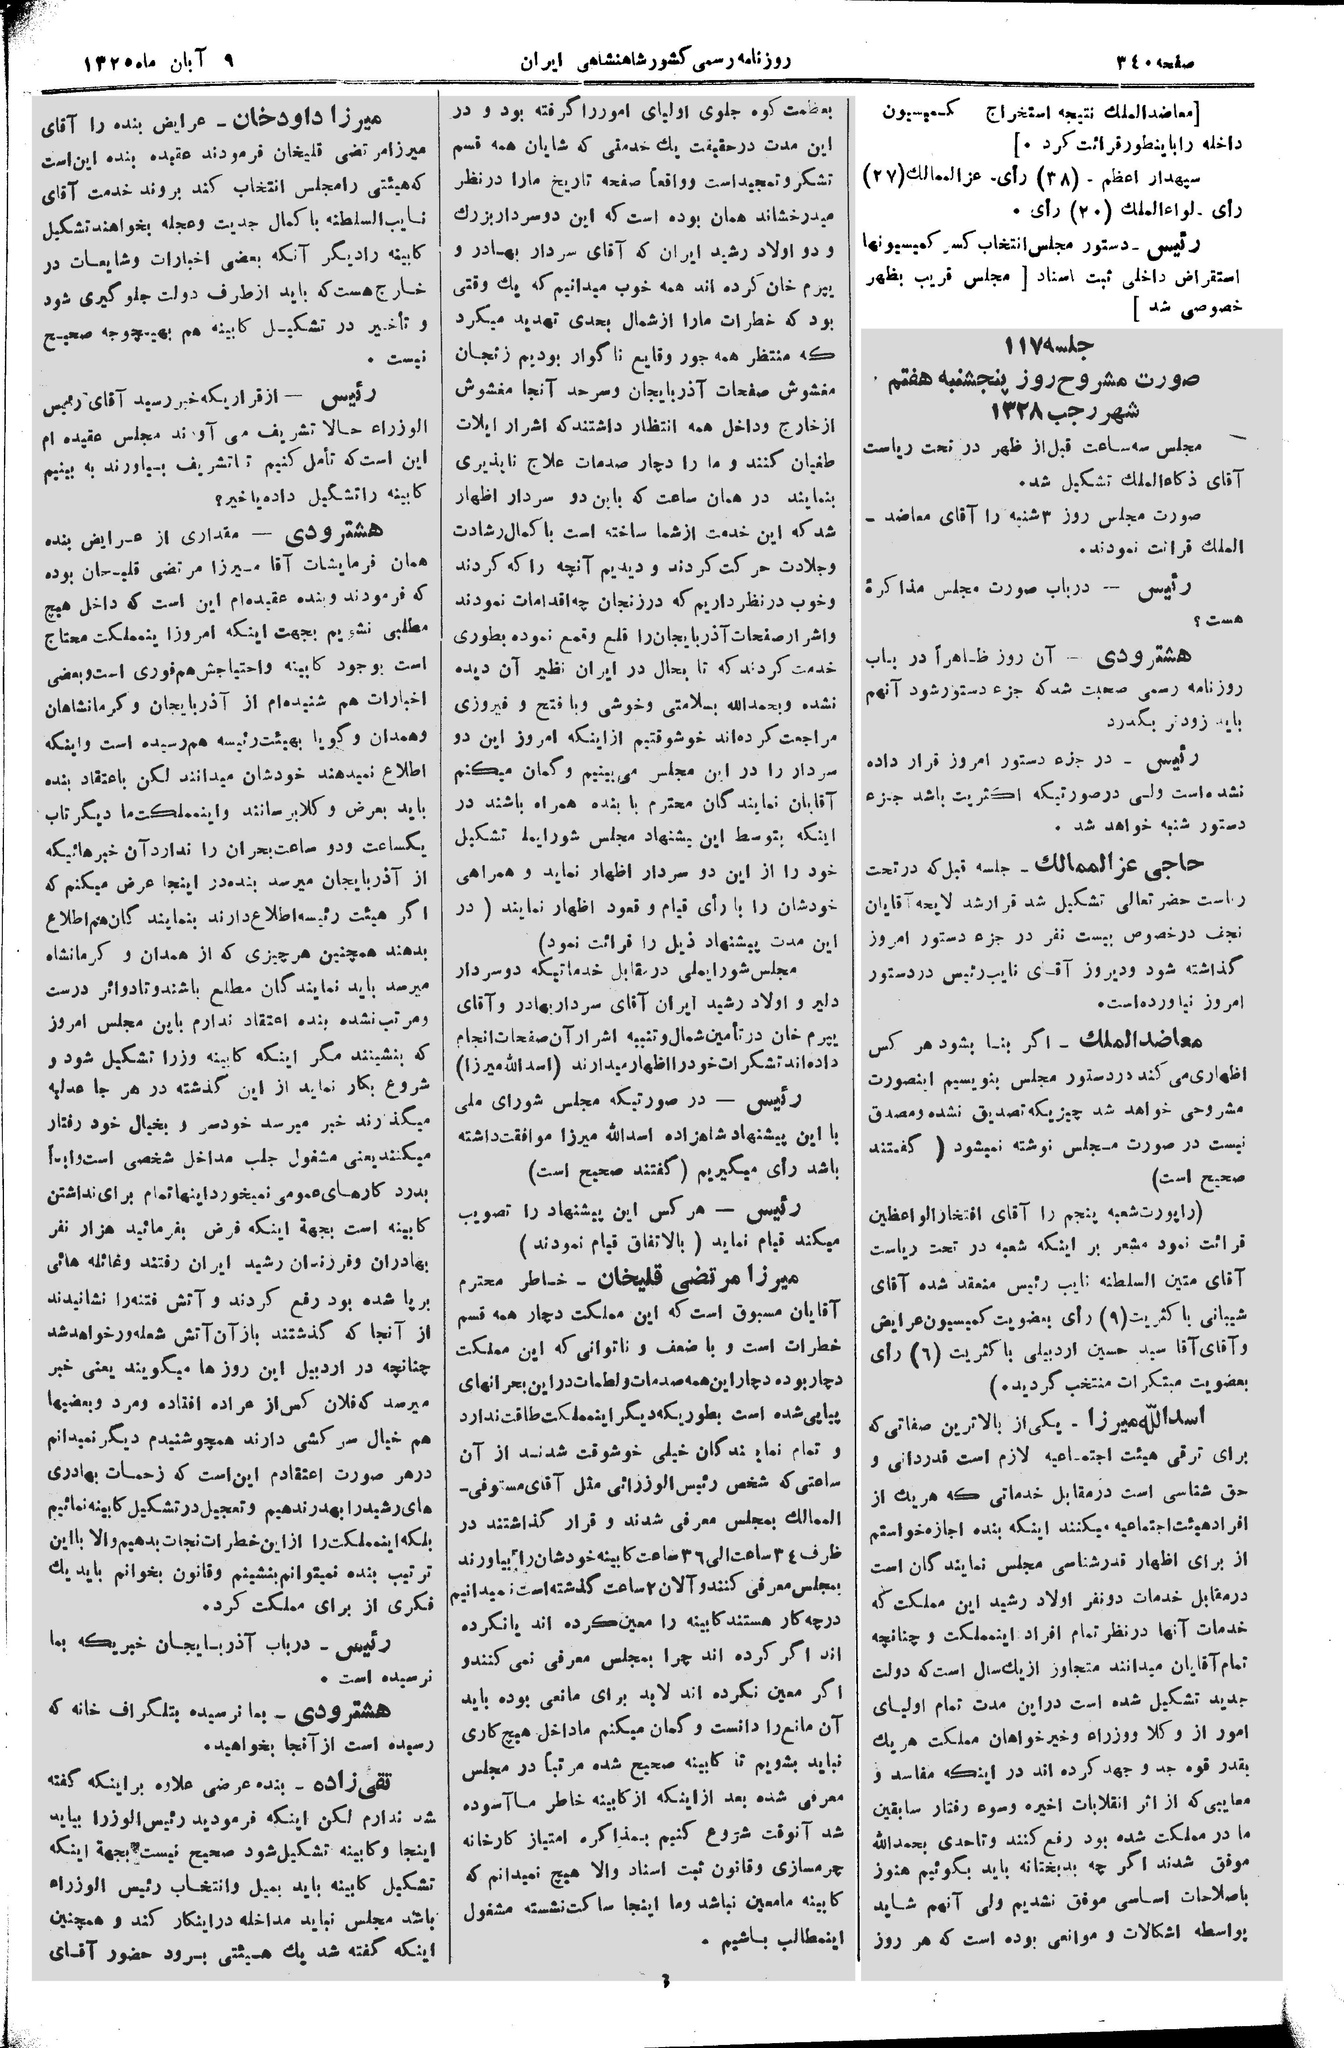 صفحه ۳۴۰
روزنامه رسمی کشور شاهنشاهی ایران
۹ آبان ماه ۱۳۲۵
[معاضدالملك نتیجه استخراج کمیسیون
داخله را باینطور قرائت کرد ۰]
سپهدار اعظم ـ (۳۸) رأی۰ عزالممالك (۲۷)
رأی ـ لواءالملك (۲۰) رأی ۰
رئیس ـ دستور مجلس انتخاب کسر کمیسیونها
استقراض داخلی ثبت اسناد [ مجلس قریب بظهر
خصوصی شد ]
جلسه ۱۱۷۹
صورت مشروح روز پنجشنبه هفتم
شهر رجب ۱۳۲۸
مجلس سه ساعت قبل از ظهر در تحت ریاست
آقای ذکاءالملك تشکیل شد۰
صورت مجلس روز ۳شنبه را آقای معاضد ـ
الملك قرائت نمودند۰
رئیس ـ درباب صورت مجلس مذاکرهٔ
هست ؟
هشترودی ـ آن روز ظاهراً در باب
روزنامه رسمی صحبت شد که جزء دستور شود آنهم
باید زودتر بگذرد
رئیس ـ در جزء دستور امروز قرار داده
نشده است ولی درصورتیکه اکثریت باشد جزء
دستور شنبه خواهد شد ۰
حاجی عزالممالك ـ جلسه قبل که در تحت
ریاست حضرتعالی تشکیل شد قرار شد لایحه آقایان
نجف درخصوص بیست نفر در جزء دستور امروز
گذاشته شود و دیروز آقای نایب رئیس در دستور
امروز نیاورده است۰
معاضدالملك ـ اگر بنا بشود هر کس
اظهاری می کند در دستور مجلس بنویسیم اینصورت
مشروحی خواهد شد چیزیکه تصدیق نشده و مصدق
نیست در صورت مجلس نوشته نمیشود ( گفتند
صحیح است)
(راپورت شعبه پنجم را آقای افتخارالواعظین
قرائت نمود مشعر بر اینکه شعبه در تحت ریاست
آقای متین السلطنه نایب رئیس منعقد شده آقای
شیبانی با کثریت (۹) رأی بعضویت کمیسیون عرایض
و آقای آقا سید حسین اردبیلی با کثریت (۶) رأی
بعضویت مبتکرات منتخب گردید۰)
اسدالله میرزا ـ یکی از بالاترین صفاتی که
برای ترقی هیئت اجتماعیه لازم است قدردانی و
حق شناسی است درمقابل خدماتی که هریك از
افراد هیئت اجتماعیه میکنند اینکه بنده اجازه خواستم
از برای اظهار قدرشناسی مجلس نمایندگان است
درمقابل خدمات دونفر اولاد رشید این مملکت که
خدمات آنها درنظر تمام افراد اینمملکت و چنانچه
تمام آقایان میدانند متجاوز از یك سال است که دولت
جدید تشکیل شده است دراین مدت تمام اولیای
امور از وکلا و وزراء و خیرخواهان مملکت هریك
بقدر قوه جد و جهد کرده اند در اینکه مفاسد و
معایبی که از اثر انقلابات اخیره و سوء رفتار سابقین
ما در مملکت شده بود رفع کنند و تاحدی بحمدالله
موفق شدند اگر چه بدبختانه باید بگوئیم هنوز
باصلاحات اساسی موفق نشدیم ولی آنهم شاید
بواسطه اشکالات و موانعی بوده است که هر روز
بعظمت کوه جلوی اولیای امور را گرفته بود و در
این مدت درحقیقت یك خدمتی که شایان همه قسم
تشکر و تمجید است و واقعاً صفحه تاریخ ما را در نظر
میدرخشاند همان بوده است که این دو سردار بزرك
و دو اولاد رشید ایران که آقای سردار بهادر و
یپرم خان کرده اند همه خوب میدانیم که یك وقتی
بود که خطرات ما را از شمال بحدی تهدید میکرد
که منتظر همه جور وقایع ناگوار بودیم زنجان
مغشوش صفحات آذربایجان و سرحد آنجا مغشوش
از خارج و داخل همه انتظار داشتند که اشرار ایلات
طغیان کنند و ما را دچار صدمات علاج ناپذیری
بنمایند در همان ساعت که باین دو سردار اظهار
شد که این خدمت از شما ساخته است با کمال رشادت
و جلادت حرکت کردند و دیدیم آنچه را که کردند
و خوب در نظر داریم که در زنجان چه اقدامات نمودند
و اشرار صفحات آذربایجان را قلع و قمع نموده بطوری
خدمت کردند که تا بحال در ایران نظیر آن دیده
نشده و بحمدالله بسلامتی و خوشی و با فتح و فیروزی
مراجعت کرده اند خوشوقتیم از اینکه امروز این دو
سردار را در این مجلس می بینیم و گمان میکنم
آقایان نمایندگان محترم با بنده همراه باشند در
اینکه بتوسط این پیشنهاد مجلس شورایملی تشکیل
خود را از این دو سردار اظهار نماید و همراهی
خودشان را با رأی قیام و قعود اظهار نمایند ( در
این مدت پیشنهاد ذیل را قرائت نمود)
مجلس شورایملی در مقابل خدماتیکه دو سردار
دلیر و اولاد رشید ایران آقای سردار بهادر و آقای
یپرم خان در تأمین شمال و تنبیه اشرار آن صفحات انجام
داده اند تشکرات خود را اظهار میدارند (اسدالله میرزا)
رئیس ـ در صورتیکه مجلس شورای ملی
با این پیشنهاد شاهزاده اسدالله میرزا موافقت داشته
باشد رأی میگیریم (گفتند صحیح است)
رئیس ـ هر کس این پیشنهاد را تصویب
میکند قیام نماید ( بالاتفاق قیام نمودند )
میرزا مرتضی قلیخان ـ خاطر محترم
آقایان مسبوق است که این مملکت دچار همه قسم
خطرات است و با ضعف و ناتوانی که این مملکت
دچار بوده دچار این همه صدمات و لطمات در این بحرانهای
پیاپی شده است بطوریکه دیگر اینمملکت طاقت ندارد
و تمام نمایندگان خیلی خوشوقت شدند از آن
ساعتی که شخص رئیس الوزرائی مثل آقای مستوفی ـ
الممالك بمجلس معرفی شدند و قرار گذاشتند در
ظرف ۲۴ ساعت الی ۳۶ ساعت کابینه خودشان را بیاورند
بمجلس معرفی کنند و الان ۲ ساعت گذشته است نمیدانیم
در چه کار هستند کابینه را معین کرده اند یا نکرده
اند اگر کرده اند چرا بمجلس معرفی نمی کنند و
اگر معین نکرده اند لابد برای مانعی بوده باید
آن مانع را دانست و گمان میکنم ما داخل هیچ کاری
نباید بشویم تا کابینه صحیح شده مرتباً در مجلس
معرفی شده بعد از اینکه از کابینه خاطر ما آسوده
شد آنوقت شروع کنیم بمذاکره امتیاز کارخانه
چرمسازی و قانون ثبت اسناد والا هیچ نمیدانم که
کابینه ما معین نباشد و ما اینجا ساکت نشسته مشغول
اینمطالب باشیم ۰
میرزا داودخان ـ عرایض بنده را آقای
میرزا مرتضی قلیخان فرمودند عقیده بنده این است
که هیئتی را مجلس انتخاب کند بروند خدمت آقای
نایب السلطنه با کمال جدیت و عجله بخواهند تشکیل
کابینه را دیگر آنکه بعضی اخبارات و شایعات در
خارج هست که باید از طرف دولت جلوگیری شود
و تأخیر در تشکیل کابینه هم بهیچوجه صحیح
نیست ۰
رئیس ـ از قراریکه خبر رسید آقای رئیس
الوزراء حالا تشریف می آورند مجلس عقیده ام
این است که تأمل کنیم تا تشریف بیاورند به بینیم
کابینه را تشکیل داده یا خیر؟
هشترودی ـ مقداری از عرایض بنده
همان فرمایشات آقا میرزا مرتضی قلیخان بوده
که فرمودند و بنده عقیده ام این است که داخل هیچ
مطلبی نشویم بجهت اینکه امروز اینمملکت محتاج
است بوجود کابینه و احتیاجش هم فوری است و بعضی
اخبارات هم شنیده ام از آذربایجان و کرمانشاهان
و همدان و گویا بهیئت رئیسه هم رسیده است و اینکه
اطلاع نمیدهند خودشان میدانند لکن باعتقاد بنده
باید بعرض وکلا برسانند و اینمملکت ما دیگر تاب
یکساعت و دو ساعت بحران را ندارد آن خبرهائیکه
از آذربایجان میرسد بنده در اینجا عرض میکنم که
اگر هیئت رئیسه اطلاع دارند بنمایندگان هم اطلاع
بدهند همچنین هر چیزی که از همدان و کرمانشاه
میرسد باید نمایندگان مطلع باشند و تا دوائر درست
و مرتب نشده بنده اعتقاد ندارم باین مجلس امروز
که بنشینند مگر اینکه کابینه وزرا تشکیل شود و
شروع بکار نماید از این گذشته در هر جا عدلیه
میگذرند خبر میرسد خودسر و بخیال خود رفتار
میکنند یعنی مشغول جلب مداخل شخصی است و ابداً
بدرد کارهای عمومی نمیخورد اینها تمام برای نداشتن
کابینه است بجهة اینکه فرض بفرمائید هزار نفر
بهادران و فرزندان رشید ایران رفتند و غائله هائی
برپا شده بود رفع کردند و آتش فتنه را نشانیدند
از آنجا که گذشتند باز آن آتش شعله ور خواهد شد
چنانچه در اردبیل این روز ها میگویند یعنی خبر
میرسد که فلان کس از عراده افتاده و مرد و بعضیها
هم خیال سرکشی دارند همچو شنیدم دیگر نمیدانم
در هر صورت اعتقادم این است که زحمات بهادری
های رشید را بهدر ندهیم و تعجیل در تشکیل کابینه نمائیم
بلکه اینمملکت را از این خطرات نجات بدهیم والا با این
ترتیب بنده نمیتوانم بنشینم و قانون بخوانم باید یك
فکری از برای مملکت کرد۰
رئیس ـ درباب آذربایجان خبریکه بما
نرسیده است ۰
هشترودی ـ بما نرسیده بتلگراف خانه که
رسیده است از آنجا بخواهید۰
تقی زاده ـ بنده عرضی علاوه بر اینکه گفته
شد ندارم لکن اینکه فرمودید رئیس الوزرا بیاید
اینجا و کابینه تشکیل شود صحیح نیست بجهة اینکه
تشکیل کابینه باید بمیل و انتخاب رئیس الوزراء
باشد مجلس نباید مداخله در اینکار کند و همچنین
اینکه گفته شد یك هیئتی برود حضور آقای
۳